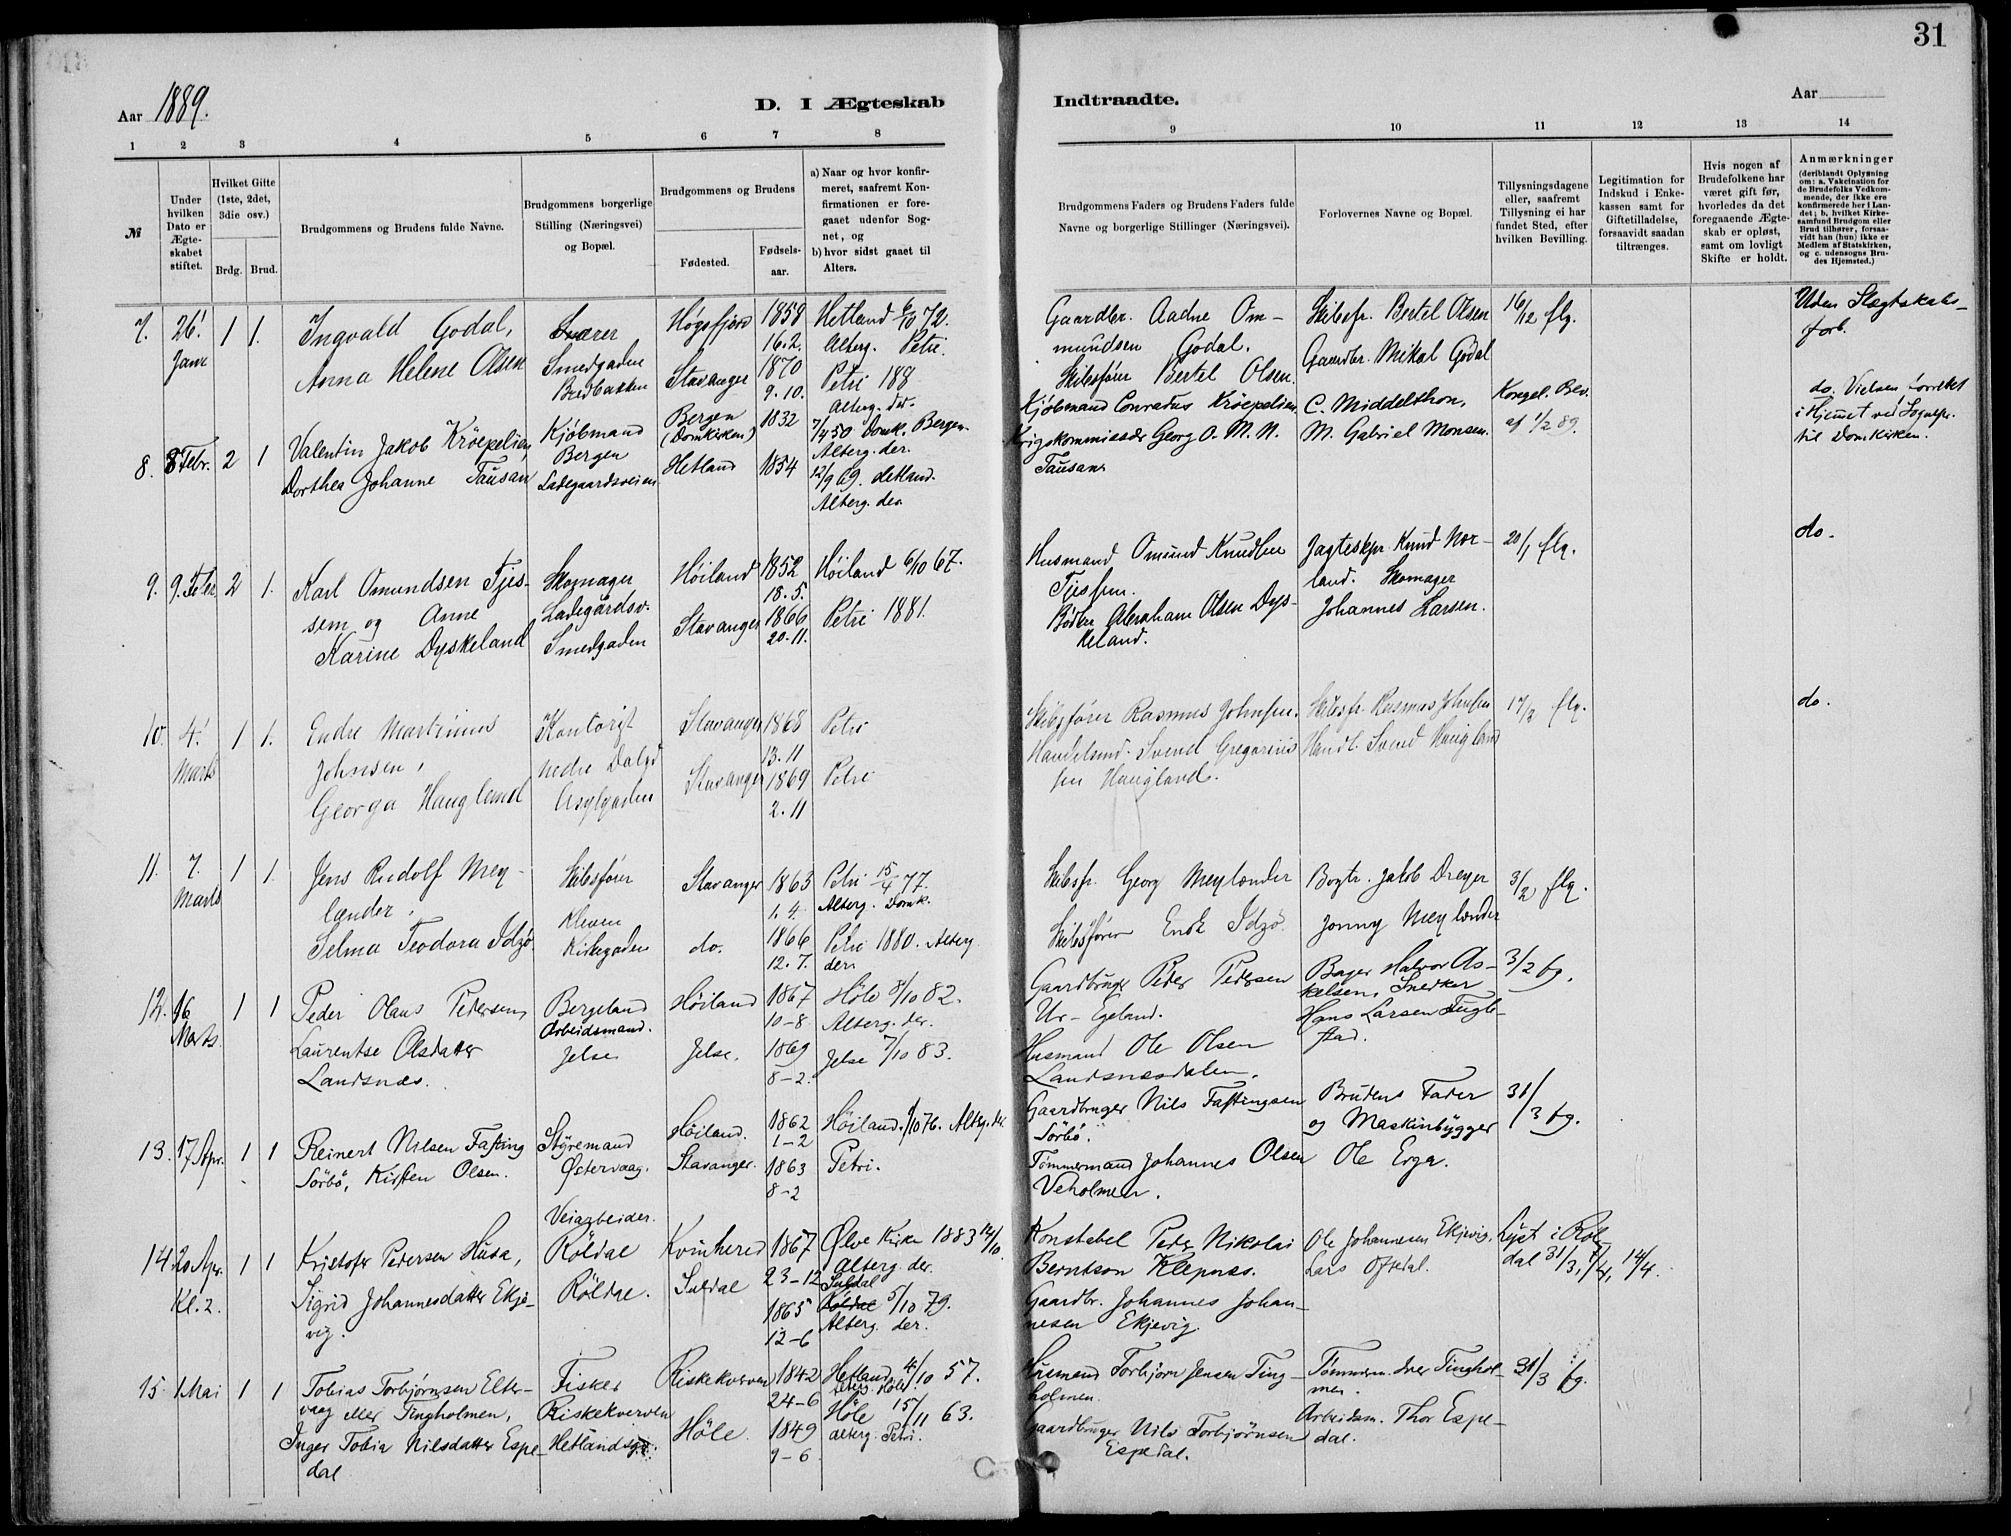 31
Aar 1889.
D. I Ægteskab
Indtraadte.
Aar
1 2 3 4 5 6 7 8 9 10 11 12 13 14
№
Under hvilken Dato er Ægte-skabet stiftet.
Hvilket Gifte (1ste, 2det, 3die osv.)
Brdg. Brud.
Brudgommens og Brudens fulde Navne.
Brudgommens borgerlige Stilling (Næringsvei) og Bopæl.
Brudgommens og Brudens
Fødested.
Fødsels-aar.
a) Naar og hvor konfir-meret, saafremt Kon-firmationen er fore-gaaet udenfor Sog-net, og
b) hvor sidst gaaet til Alters.
Brudgommens Faders og Brudens Faders fulde Navne og borgerlige Stillinger (Næringsvei).
Forlovernes Navne og Bopæl.
Tillysningsdagene eller, saafremt Tillysning ei har fundet Sted, efter hvilken Bevilling.
Legitimation for Indskud i Enke-kassen samt for Giftetilladelse, forsaavidt saadan tiltrænges.
Hvis nogen af Brudefolkene har været gift før, hvorledes da det foregaaende Ægte-skab er opløst, samt om lovligt Skifte er holdt.
Anmærkninger (deriblandt Oplysning om: a. Vakcination for de Brudefolks Vedkom-mende, der ikke ere konfirmerede her i Lan-det; b. hvilket Kirke-samfund Brudgom eller Brud tilhører, forsaa-vidt han (hun) ikke er Medlem af Statskirken, og c. udensogns Bru-des Hjemsted.)
7. 26! Janr 1 1.
Ingvald Godal,
Anna Helene Olsen
Snærer
Smedgaden
Bredbakken
Høgsfjord
Stavanger
1858
16.2.
1870
9.10.
Hetland 6/10 72.
Alterg. Petri.
Petri 188
Alterg. der.
Gaardbr. Aadne Om-
mundsen Godal.
Skibsfører Bertel Olsen.
Skibsfr. Bertel Olsen
Gaardbr. Mikal Godal
16/12 flg.
Uden Slægtskabs-
forb.
8. 8 Febr. 2 1
Valentin Jakob Kröepelien,
Dorthea Johanne Tausan
Kjöbmand
Bergen
Ladegaardsveien
Bergen
(Domkirken)
Hetland
1832
1834
7/4 50 Domk. Bergen.
Alterg. der.
12/9 69. Hetland.
Alterg. der
Kjöbmand Conradus Kröepelien.
Krigskommissær Georg O. M. N.
Tausan
C. Middelthon,
M. Gabriel Monsen.
Kongel. Bev.
af 1/2 89.
do. Vielsen forrettet
i Hjemet ved Sognepr.
til Domkirken.
9. 9. Febr 2 1.
Karl Omundsen Tjes-
sem og Anne
Karine Dyskeland
Skomager
Ladegårdsv.
Smedgaden
Høiland
Stavanger
1852
18.5.
1866
20.11.
Høiland 6/10 67.
Petri 1881.
Husmand Omund Knudsen
Tjessem.
Bødker Abraham Olsen Dys-
keland.
Jagteskpr. Knud Nor-
land. Skomager
Johannes Larsen.
20/1 flg.
do.
10. 4! Marts 1 1.
Endre Martinius
Johnsen,
Georga Haugland
Kontorist
nedre Dalgd
Asylgaden
Stavanger
Stavanger
1868
13.11
1869
2.11
Petri
Petri
Skibsfører Rasmus Johnsen.
Handelsmd. Svend Gregorius
sen Haugland.
Skibsfr. Rasmus Johnsen
Handl. Svend Haugland
17/2 flg.
do.
11. 7. Marts 1 1.
Jens Rudolf Mey-
lænder,
Selma Teodora Idzø
Skibsfører
Kleven
Kirkegaden
Stavanger
do.
1863
1.4.
1866
12.7.
Petri 15/4 77.
Alterg. Domk.
Petri 1880. Alterg.
der.
Skibsfr. Georg Meylænder
Skibsfører Enok Idzø.
Bogtr. Jakob Dreyer
Jonny Meylænder
3/2 flg.
12. 16 Marts. 1 1
Peder Olaus Pedersen,
Laurentse Olsdatter
Landsnæs.
Bergeland
Arbeidsmand.
Jelse
Höiland
Jelse.
1867
10-8
1869
8-2.
Höle 8/10 82.
Alterg. der.
Jelse 7/10 83.
Gaardbruger Peder Pedersen
Ur-Egeland.
Husmand Ole Olsen
Landsnæsdalen.
Bager Halvor As-
kelsen, Snedker
Hans Larsen Fugle-
stad.
3/2 fg.
13. 17 Apr. 1 1
Reinert Nilsen Fasting
Sörbö, Kirsten Olsen.
Styremand
Østervaag.
Höiland.
Stavanger.
1862
1-2
1863
8-2
Höiland. 1/10 76. Alterg. der.
Petri.
Gaardbruger Nils Fastingsen
Sörbö.
Tømmermand Johannes Olsen
Veholmen.
Brudens Fader
og Maskinbygger
Ole Erga.
31/3 fg.
14. 20 Apr. Kl. 2. 1 1
Kristofer Pedersen Husa,
Sigrid Johannesdatter Ekje-
vig.
Veiarbeider.
Röldal
Röldal.
Kvinhered
Suldal
1867
23-12
1865
12-6
Ølve Kirke 1883 14/10.
Alterg. der.
Suldal
Röldal 5/10 79.
Alterg. der.
Konstabel Peder Nikolai
Berntson Klepnæs.
Gaardbr. Johannes Johan-
nesen Ekjevig.
Ole Johannesen Ekjevig.
Lars Oftedal.
Lyst i Röl-
dal 31/3, 7/4, 14/4.
15 1 Mai 1 1
Tobias Torbjørnsen Elter-
vaag eller Tingholmen,
Inger Tobia Nilsdatter Espe-
dal
Fisker
Riskekverven
Hetlandsgd.
Riskekverven
Höle.
1842
24-6
1849
9-6
Hetland 4/10 57.
Alterg. Höle.
Höle 15/11 63.
alterg. Petri.
Husmand Torbjörn Jensen Ting-
holmen.
Gaardbruger Nils Torbjörnsen
Espedal.
Tømmerm. Iver Tinghol-
men.
Arbeidsm. Thor Espe-
dal.
31/3 fg.